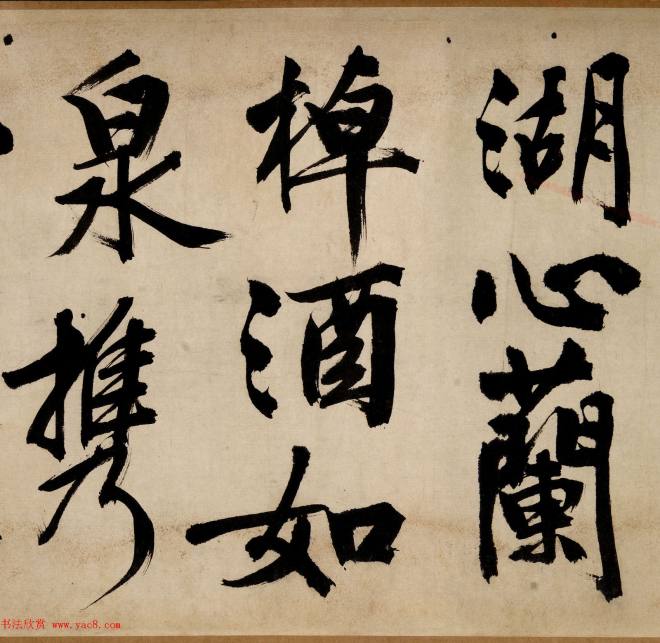 湖心蘭
棹酒如
泉携
书法欣赏 www.yac8.com